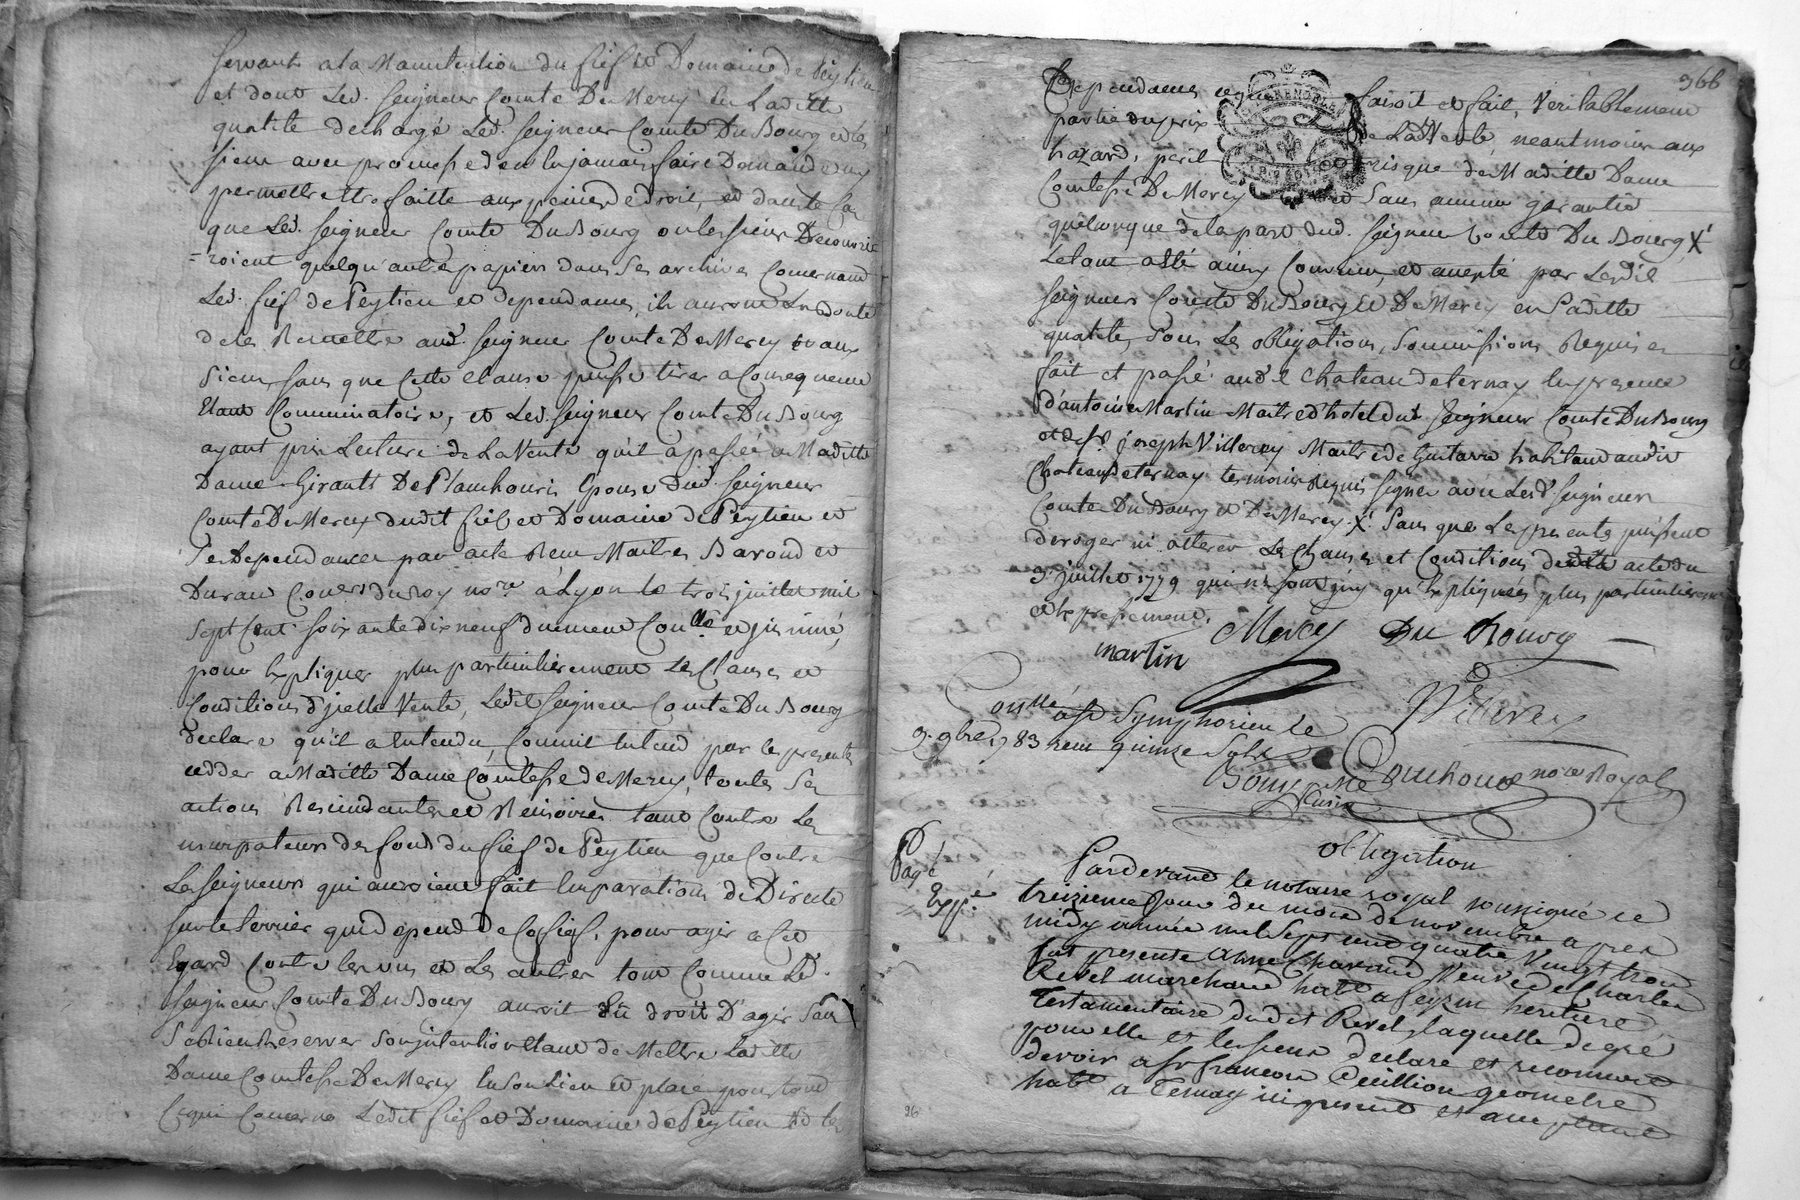 servant a la Manutention du fief et Domaine de Peytieu
et dont Led. Seigneur Comte De Mercy En Laditte
qualité decharge Led. Seigneur Comte Du Bourg et les
siens avec promesse den jamais faire Demande ny
permettre Etre faitte aux peines de droit, et dans le Cas
que Led. Seigneur Comte Du Bourg ou les siens Decouvri
=roient quelqu'autre papiers dans ses archives Concernant
Led. fief de Peytieu et dependances, ils auront La bonté
de les Remettre aud. Seigneur Comte De Mercy ou aux
siens, sans que Cette Clause puisse tirer a Consequence
Etant Comminatoire, et Led. Seigneur Comte Du Bourg
ayant pris Lecture de La Vente qu'il a passée a Maditte
Dame Girault De Plamhouris Epouse Dud. Seigneur
Comte De Mercy dudit fief et Domaine de Peytieu et
Ses Dependances par acte Reçu Maitres Baroud et
Durand Con.ers du Roy no.re à Lyon le trois juillet mil
Sept Cent soixante dix neuf duement Con.llé et insinué,
pour Expliquer plus particulierement Les Clauses et
Conditions d'jcelle Vente, Ledit Seigneur Comte Du Bourg
declare qu'il a Entendu, Comme Entend par le presente
cedder a Maditte Dame Comtesse de Mercy, toutes Ses
actions Rescindantes et Rescisoires tant Contre Les
usurpateurs des fonds du fief de Peytieu que Contre
Les Seigneurs qui auroient fait Emparations de Directe
sur le terrier qui depend De Ce fief, pour agir a Cet
Egard Contre les uns et Les autres tout Comme Led.
Seigneur Comte Du Bourg auroit Eu droit D'agir Sans
S'y Rien Reserver Son jntention Etant de Mettre Laditte
Dame Comtesse De Mercy En Son Lieu et place pour tout
Ce qui Concerne Ledit fief et Domaine de Peytieu et les
366
Dependances ce qui faisoit et fait, Veritablement
partie du prix de Lad. Vente, neantmoins aux
hazard, peril et risque de Maditte Dame
Comtesse De Mercy et Sans aucune garantie
quelconque de la part dud. Seigneur Comte Du Bourg X
Le tout a Eté ainsy Convenu, et accepté par Lesd.
Seigneurs Comte Du Bourg et De Mercy en Laditte
qualité, Sous Les obligations, Soumissions Requises
fait et passé aud. Chateau de ternay En presence
d'antoine Martin Maitre d'hotel dud. Seigneur Comte Du Bourg
et de S.r joseph Villerey Maitre de Guitarre habitant audit
Chateau De ternay temoins Requis Signes avec Lesd. Seigneurs
Comte Du Bourg et De Mercy. X Sans que Les presentes puissent
deroger ni alterer Les Clauses et Conditions de acte du
3. juillet 1779 qui ne sont jcy qu'Expliquées plus particulierement
et Expressement.
Mercy Du Bourg
martin
Villerey
Con.llé a St Symphorien le
9. 9bre 1783 reçu quinze Sols
no.re Royal
obligation
Payé
Exp.é
Pardevant le notaire royal soussigné ce
treizieme Jour du mois de novembre apres
midy année mil sept cent quatre Vingt trois
fut presente Anne Chavane Veuve de Charles
Revel marchand habt. a Seyzin heritiere
Testamentaire dudit Revel, laquelle de gré
pour elle et les siens declare et reconnoit
devoir a Sr françois Cuillion geometre
habt. a Ternay ici present et acceptant